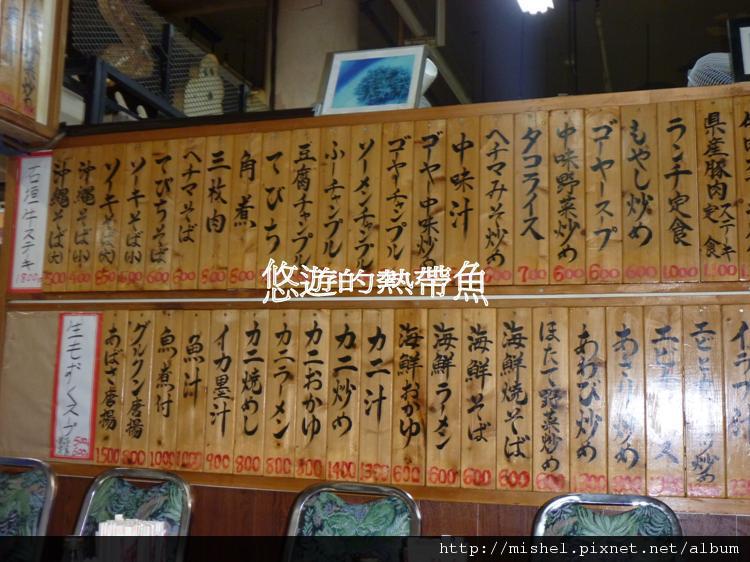 県産豚肉ステーキ定食
ランチ定食 1,000
もやし炒め 600
ゴーヤースープ 600
中味野菜炒め 600
タコライス 700
ヘチマみそ炒め
中味汁
ゴーヤー中味炒め
ゴーヤーチャンプル
ソーメンチャンプル
ふーチャンプル
豆腐チャンプル
てびち
角煮 800
三枚肉 800
ヘチマそば 600
てびちそば 600
ソーキそば(小)
ソーキそば(大)
沖縄そば(小) 400
沖縄そば(大) 500
石垣牛ステーキ 1800
悠遊的熱帶魚
あさり炒め
あわび炒め
ほたて野菜炒め 600
海鮮焼そば 600
海鮮そば 600
海鮮ラーメン 600
海鮮おかゆ 600
カニ汁 1300
カニ炒め 1400
カニおかゆ 800
カニラーメン 800
カニ焼めし 800
イカ墨汁 900
魚汁 1000
魚煮付 1000
グルクン唐揚 800
あばさ唐揚 1500
生もずくスープ
http://mishel.pixnet.net/album